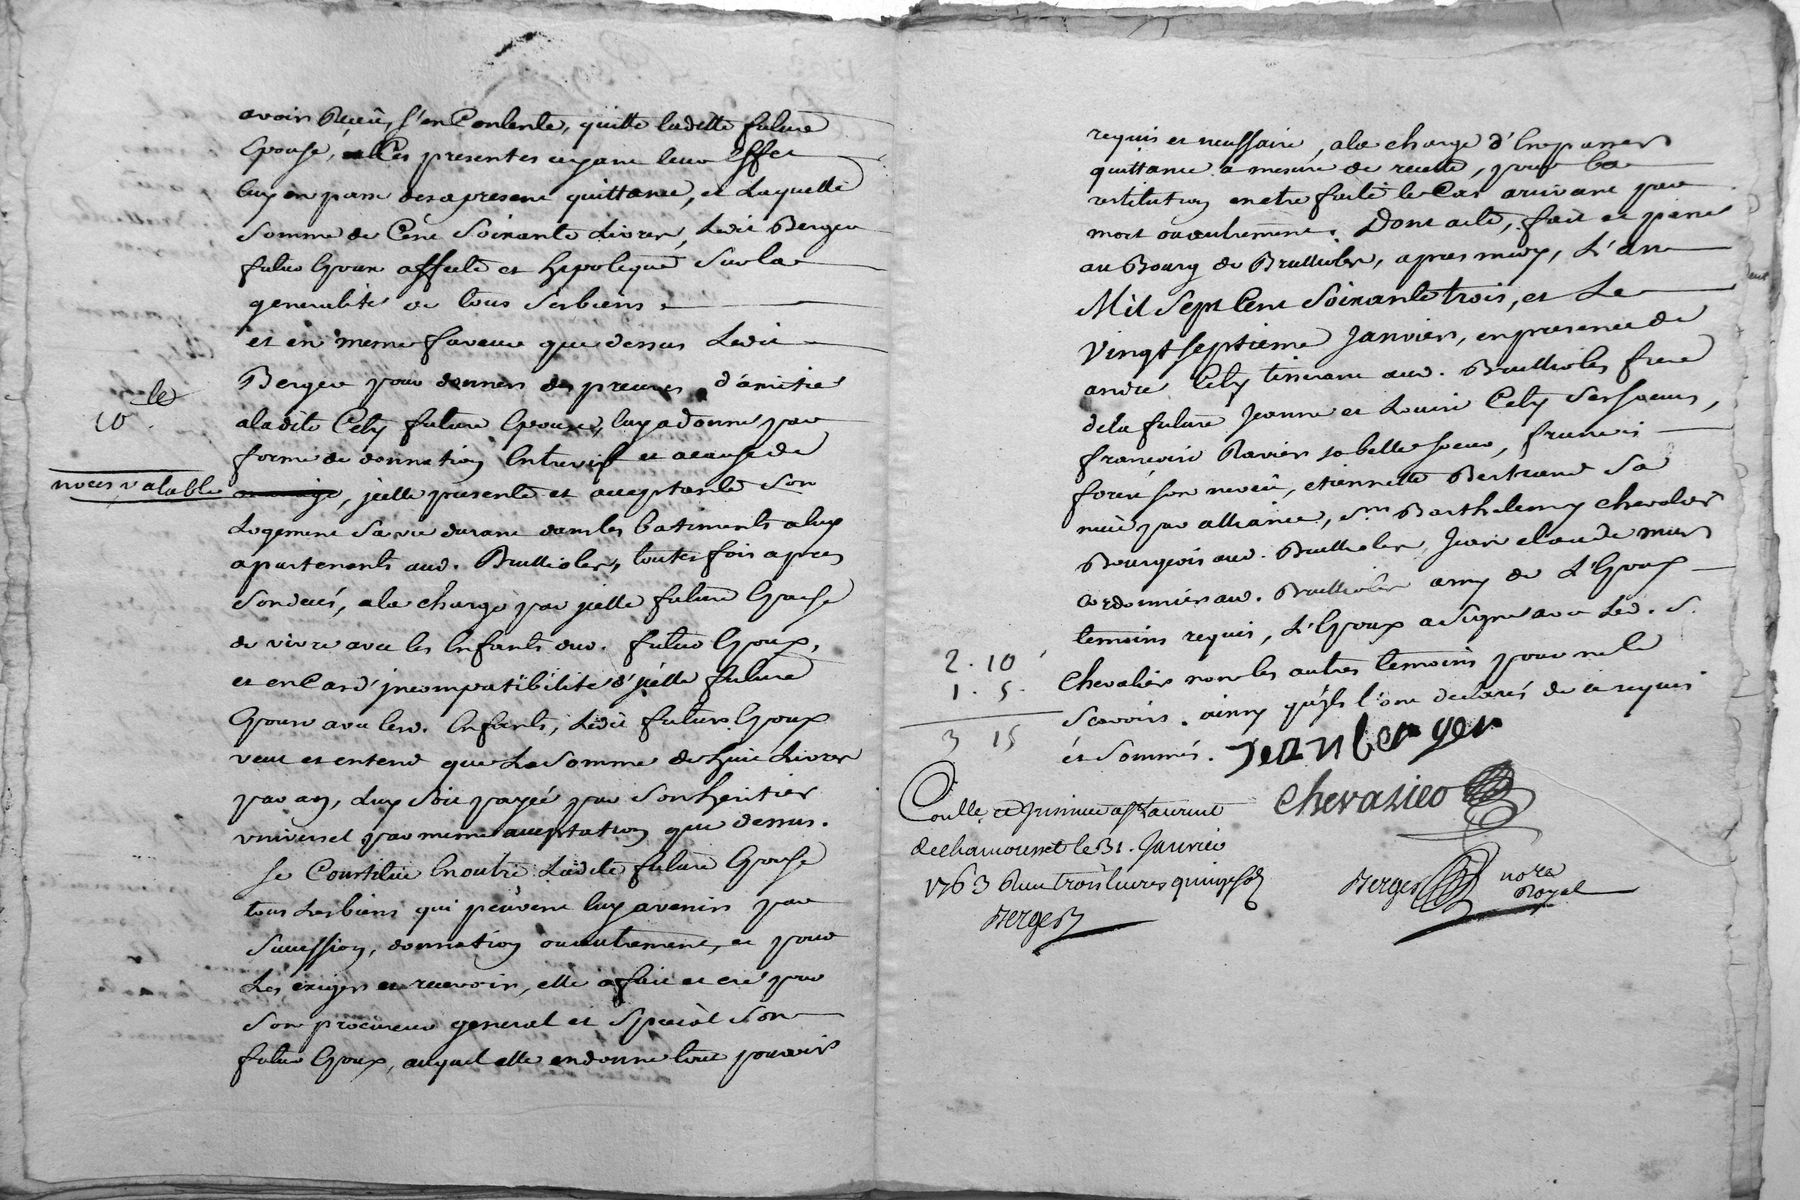 avoir Reçeù, s'en Contente, quitte ladette future
Epouse, Ces presentes ayant leur Effet
luy en passe desapresent quittance, et Laquelle
Somme de Cent Soixante Livres, Ledit Berger
futur Epoux affecte et hypoteque Surla
generalité de tous Ses biens.
et en meme faveur que dessus Ledit
Berger pour donner des preuves d'amitié
10 le
aladite Cely future Epouse, luy adonné par
forme de donnation Entrevif et acause de
noces valable
jcelle présente et acceptante Son
Logement Sa vie durant dans les batiments aluy
apartenants aud. Brullioles, toutes fois apres
Son decés, ala charge par jcelle future Epouse
de vivre avec les Enfants dud. futur Epoux,
et en Cas d'jncompatibilité d'jcelle future
Epouse avec lesd. Enfants, Ledit futur Epoux
veut et entend que La Somme de huit Livres
par an, Luy Soit payée par Son heritier
vniversel par meme acceptation que dessus.
Se Constitue Enoutre Ladite future Epouse
tous Les biens qui peuvent luy avenir par
Succession, donnation ou autrement, et pour
Les exiger et recevoir, elle a fait et cré pour
Son procureur general et Special Son
futur Epoux, auquel elle endonne tout pouvoir
requis et necessaire, ala charge d'En passer
quittance a mesure de recette, pour la
restitution enetre faite le Cas arrivant par
mort ou autrement. Dont acte, fait et passé
au Bourg de Brullioles, apres midy, L'an
Mil Sept Cent Soixante trois, et Le
Vingt septieme Janvier, en presence de
andré Cely tisserant aud. Brullioles frere
dela future Jeanne et Louise Cely Ses Soeurs,
francoise Ravier sa belle soeur, francois
son neveu, etiennette Bertrand Sa
niece par alliance, Sr. Barthelemy Chevalier
Bourgeois aud. Brullioles, Jean claude
Cordonnier aud. Brullioles amy de L'Epoux
temoins requis, L'Epoux a Signé avec Led. S.
2. 10
Chevalier non les autres temoins pour ne le
1. 5.
Scavoir. ainsy qu'jls l'ont declarés de ce requis
3 15
et Sommés. Jean berger
Chevalier
Controllé a St Laurent
de chamousset le 31. Janvier
1763 Reçu trois livres quinze sols
Berger
Berger nore
Royal